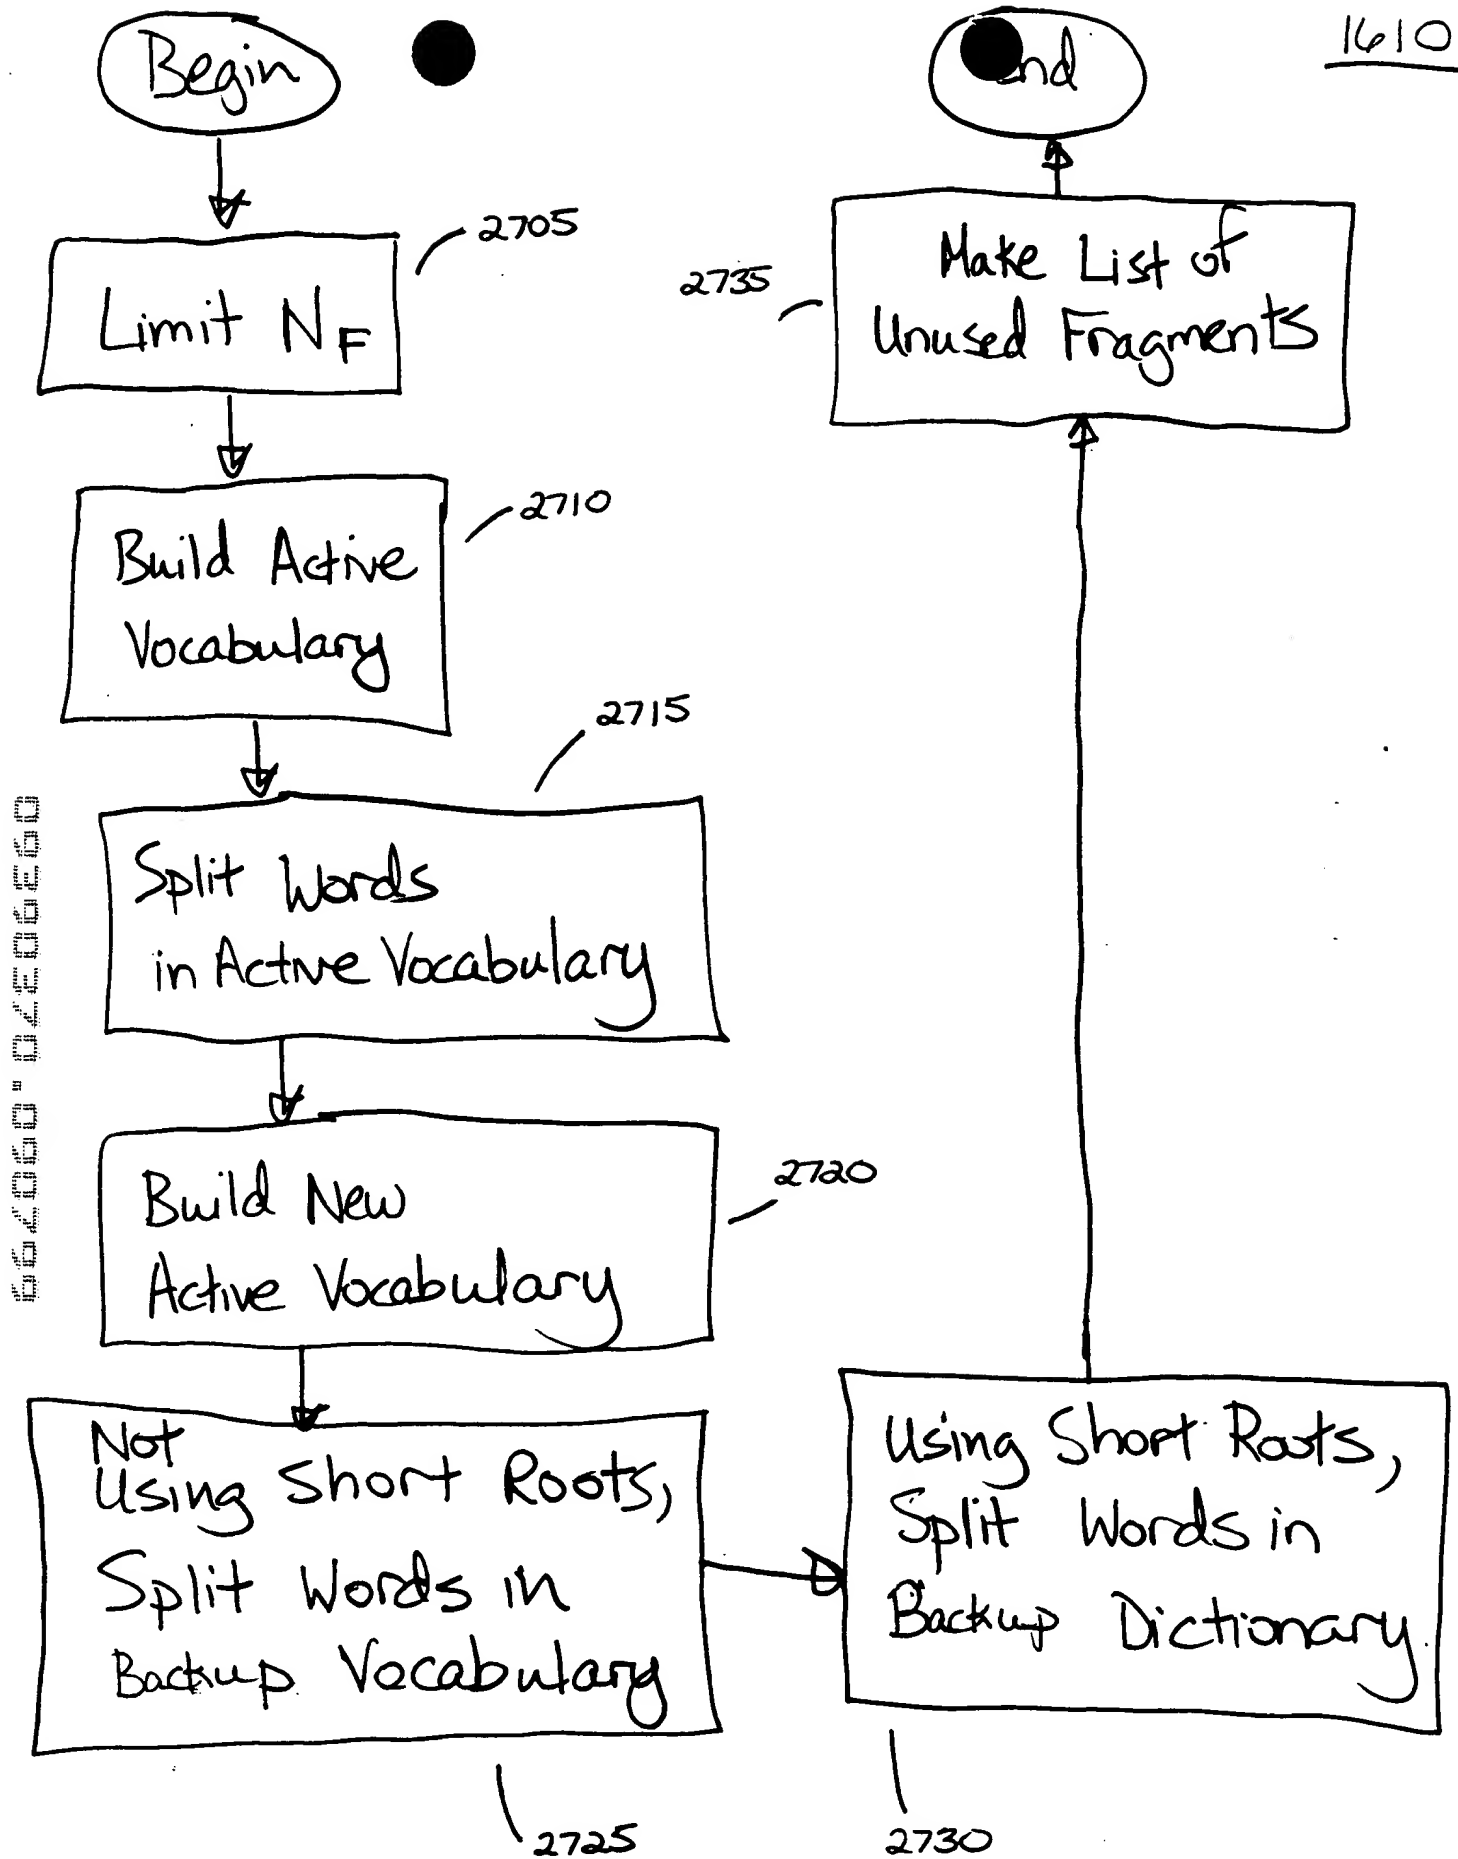 Begin
1610
2705
Limit NF
2710
Build Active
Vocabulary
2715
Split Words
in Active Vocabulary
2720
Build New
Active Vocabulary
Not
Using Short Roots,
Split Words in
Backup Vocabulary
2725
Using Short Roots,
Split Words in
Backup Dictionary
2730
2735
Make List of
Unused Fragments
nd
09390370.090799